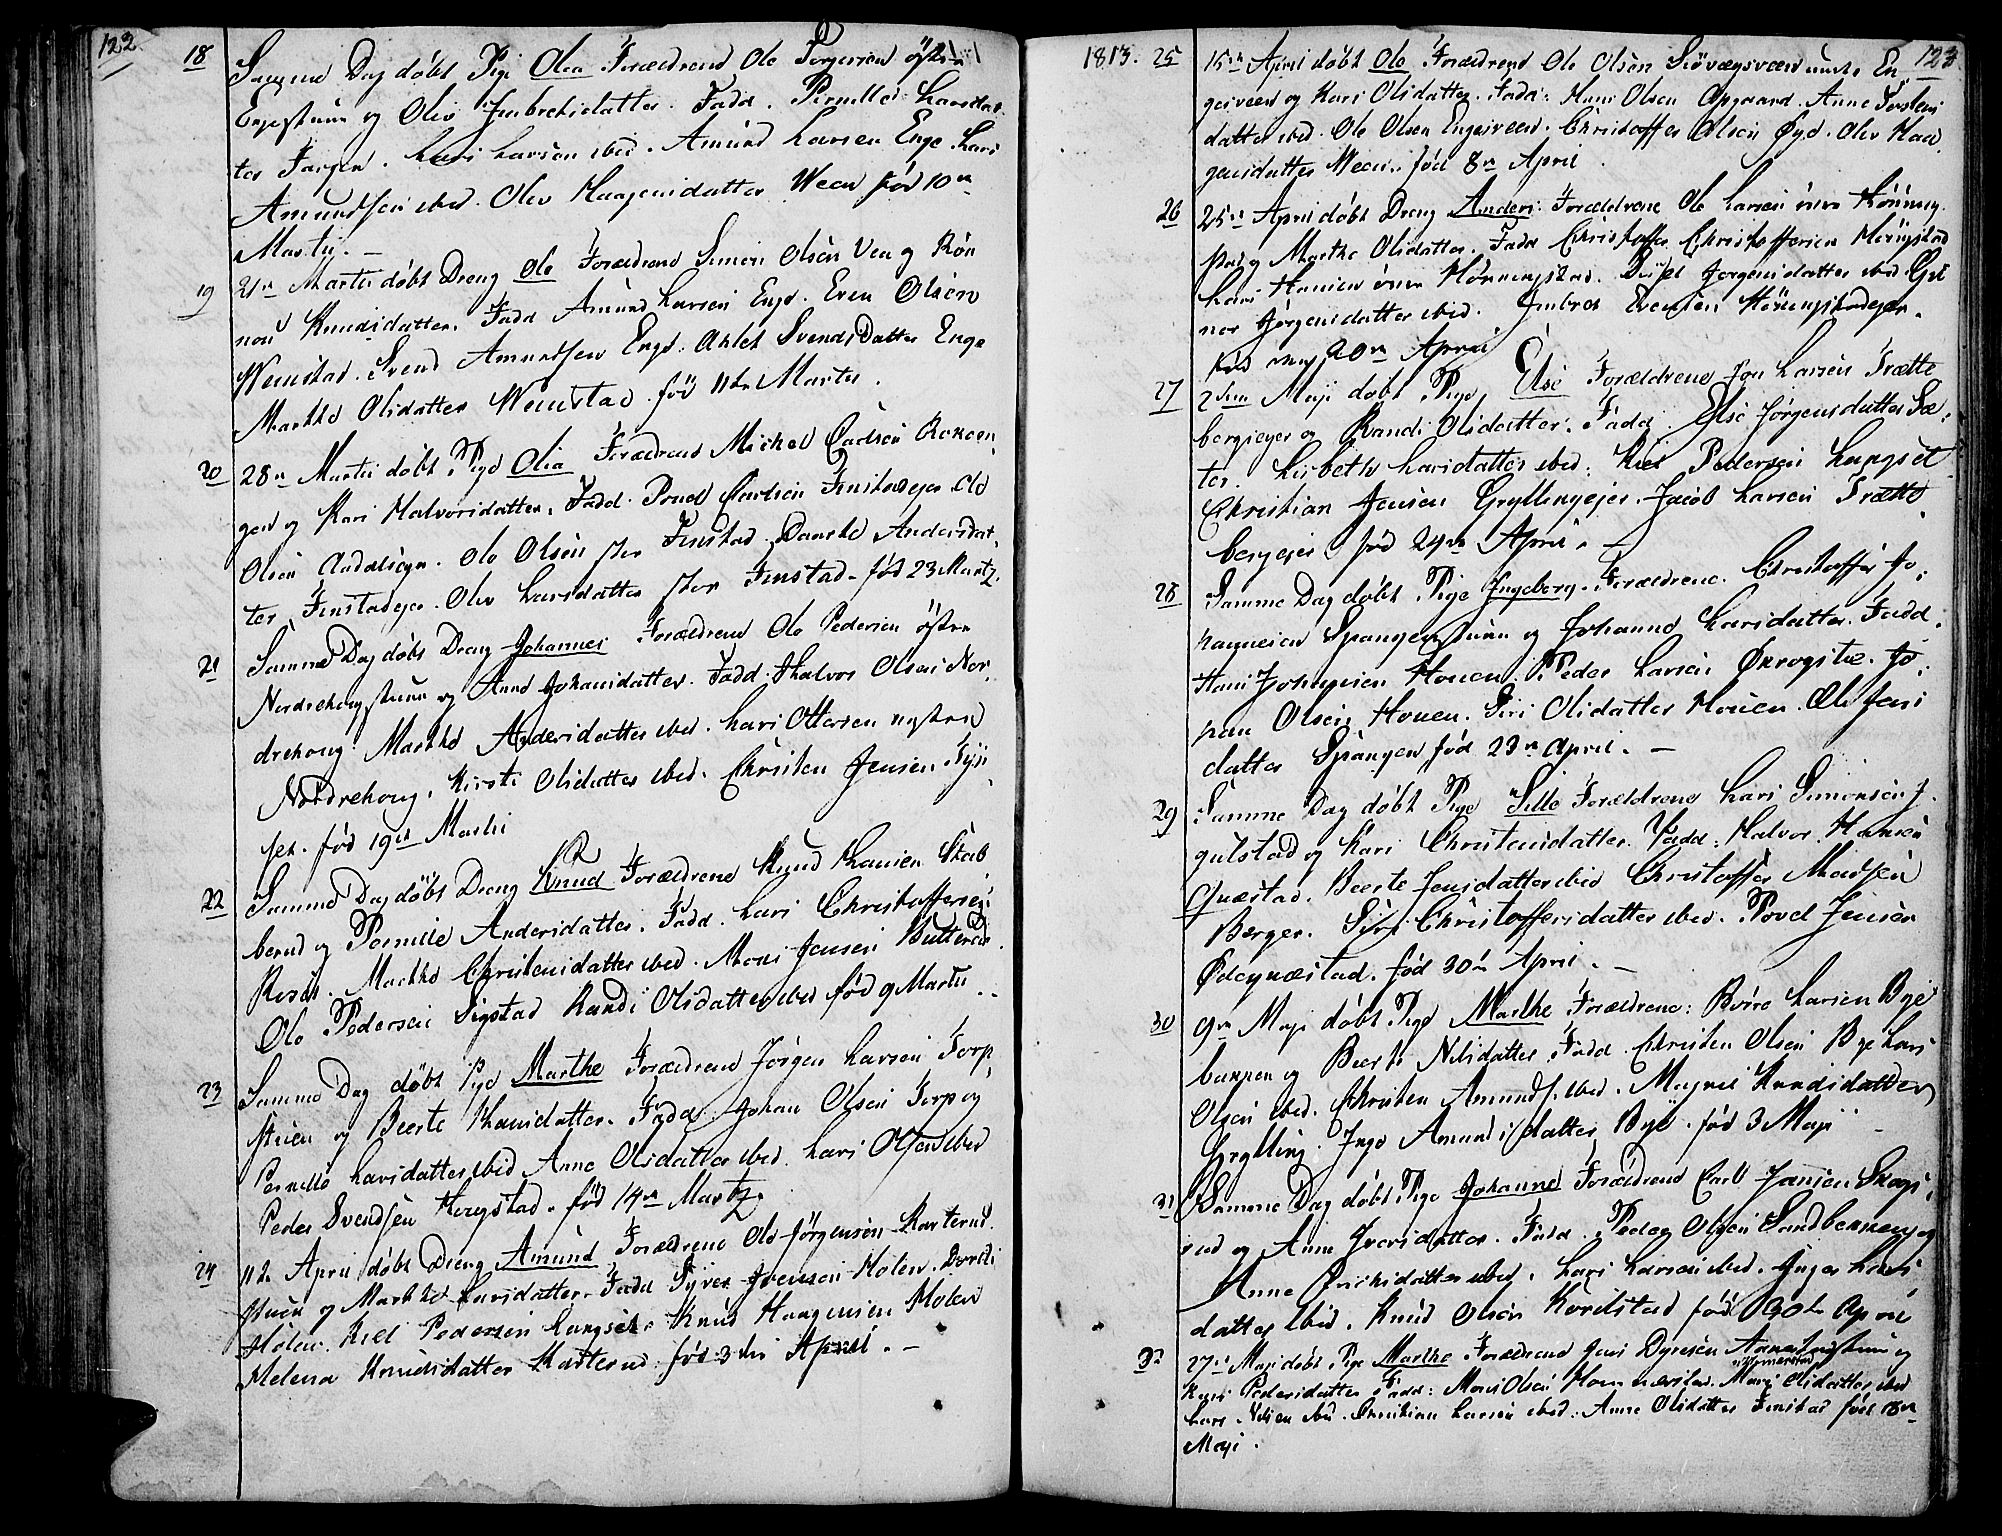 122.
18 Samme Dag døbt Pige Olea Forældrene Ole Torgersen østre
Engestuen og Oliv Imbrethsdatter. Fadd. Pernille Larsdat-
ter Lars Larsen ibid. Amund Larsen Enge. Lars
Amundsen ibid. Oliv Haagensdatter Ween fød 10de
Martij. –
19 21de Martii døbt Dreng Ole Forældrene Simen Olsen Ven og Røn
nou Knudsdatter. Fadd Amund Larsen Enge. Even Olsen
Wenstad. Svend Amundsen Enge. Ahlet Svendsdatter Enge
Marthe Olsdatter Wenstad. fød 11te Martii.
20 28de Martii døbt Pige Olia Forældrene Michel Carlsen
gen og Kari Halvorsdatter. Fadd. Poul Carlsen Finstadejer. Ole
Olsen. Ole Olsen stor Finstad. Dorthe Andersdat-
ter Finstadejer. Oliv Larsdatter stor Finstad. fød 23 Martz.
21 Samme Dag døbt Dreng Johannes Forældrene Ole Pedersen østre
Nordrehougstuen og Anne Johansdatter. Fadd. Halvor Olsen Nor-
drehoug. Marthe Andersdatter ibid. Lars Ottersen vestre
Nordrehoug. Kirsti Olsdatter ibid. Christen Jensen
fød 19de Martii
22 Samme Dag døbt Dreng Knud Forældrene Knud Hansen Skab
berud og Pernille Andersdatter. Fadd. Lars Christoffersen
Marthe Christensdatter ibid. Mons Jensen Butterud
Ole Pedersen Sigstad Randi Olsdatter ibid fød 9 Martii.
23 Samme Dag døbt Pige Marthe Forældrene Jørgen Larsen Torp
stuen og Beerte Hansdatter. Fadd. Johan Olsen Torp og
Pernille Larsdatter ibid Anne Olsdatter ibid. Lars Olsen ibid
Peder Svendsen Hougstad. fød 14de Martz
24 11te April døbt Dreng Amund Forældrene Ole Jørgensen Karterud
stuen og Marthe Larsdatter. Fadd Syver Iversen Holen. Dorthe
Holen. Kiel Pedersen Langset. Knud Haagensen Holen
Helena Knudsdatter Karterud. fød 3die April. –
1813. 123
25 15de April døbt Ole Forældrene Ole Olsen Siøvægsveen under En
gesveen og Kari Olsdatter. Fadd: Hans Olsen Opgaard. Anne Torstens
datter ibid. Ole Olsen Engesveen. Christoffer Olsen Øyd. Oliv Haa
gensdatter Ween. fød 8de April.
26 25de April døbt Dreng Anders. Forældrene Ole Larsen øvre Hønning
stad og Marthe Olsdatter. Fadd Christoffer Christoffersen Hønningstad
Lars Hansen øvre Hønningstad. Jørgensdatter ibid Gu
nor Jørgensdatter ibid. Imbret Evensen Hønningstadejer.
fød 20de April
27 2den Maji døbt Pige Else Forældrene Jon Larsen Trætte
bergsejer og Randi Olsdatter. Fadd. Else Jørgensdatter Sæ-
ter. Lisbeth Larsdatter ibid. Kiel Pedersen Langset
Christian Jensen Gryllingejer. Jacob Larsen Trætte
bergejer fød 24de April. –
28 Samme Dag døbt Pige Ingeborg. Forældrene. Christoffer Jo-
hannesen Spangenstuen og Johanne Larsdatter. Fadd.
Hans Johannesen Houen. Peder Larsen. Jo-
han Olsen Houen. Siri Olsdatter Houen. Ole Jens
datter Spangen fød 23de April. –
29 Samme Dag døbt Pige Sille Forældrene Lars Simensen J
gulstad og Kari Christensdatter. Fadd: Halvor Hansen
Qvæstad. Beerte Jensdatter ibid Christoffer Madsen
Berger. Siri Christoffersdatter ibid. Povel Jensen
Ødeqvæstad. fød 30de April. –
30 9de Maji døbt Pige Marthe Forældrene: Børre Larsen Bye
bakken og Beerte Nilsdatter. Fadd. Christen Olsen Bye Lars
Olsen ibid. Christen Amunds. ibid. Magnil Knudsdatter
Grylling. Inge Amundsdatter Bye. fød 3 Maji
31 Samme Dag døbt Pige Johanne Forældrene Carl Jansen Skogs
rud og Anne Iversdatter. Fadd. Peder Olsen Sandbakken og
Anne Erichsdatter ibid. Lars Larsen ibid. Inger Lars
datter ibid. Knud Olsen Korilstad fød 30te April
32 27de Maji døbt Pige Marthe Forældrene Jens Dyresen og
Kari Pedersdatter. Fadd: Mons Olsen Hommerstad. Mari Olsdatter ibid
Lars Nilsen ibid. Christian Larsen ibid. Anne Olsdatter Finstad fød 18de
Maji.